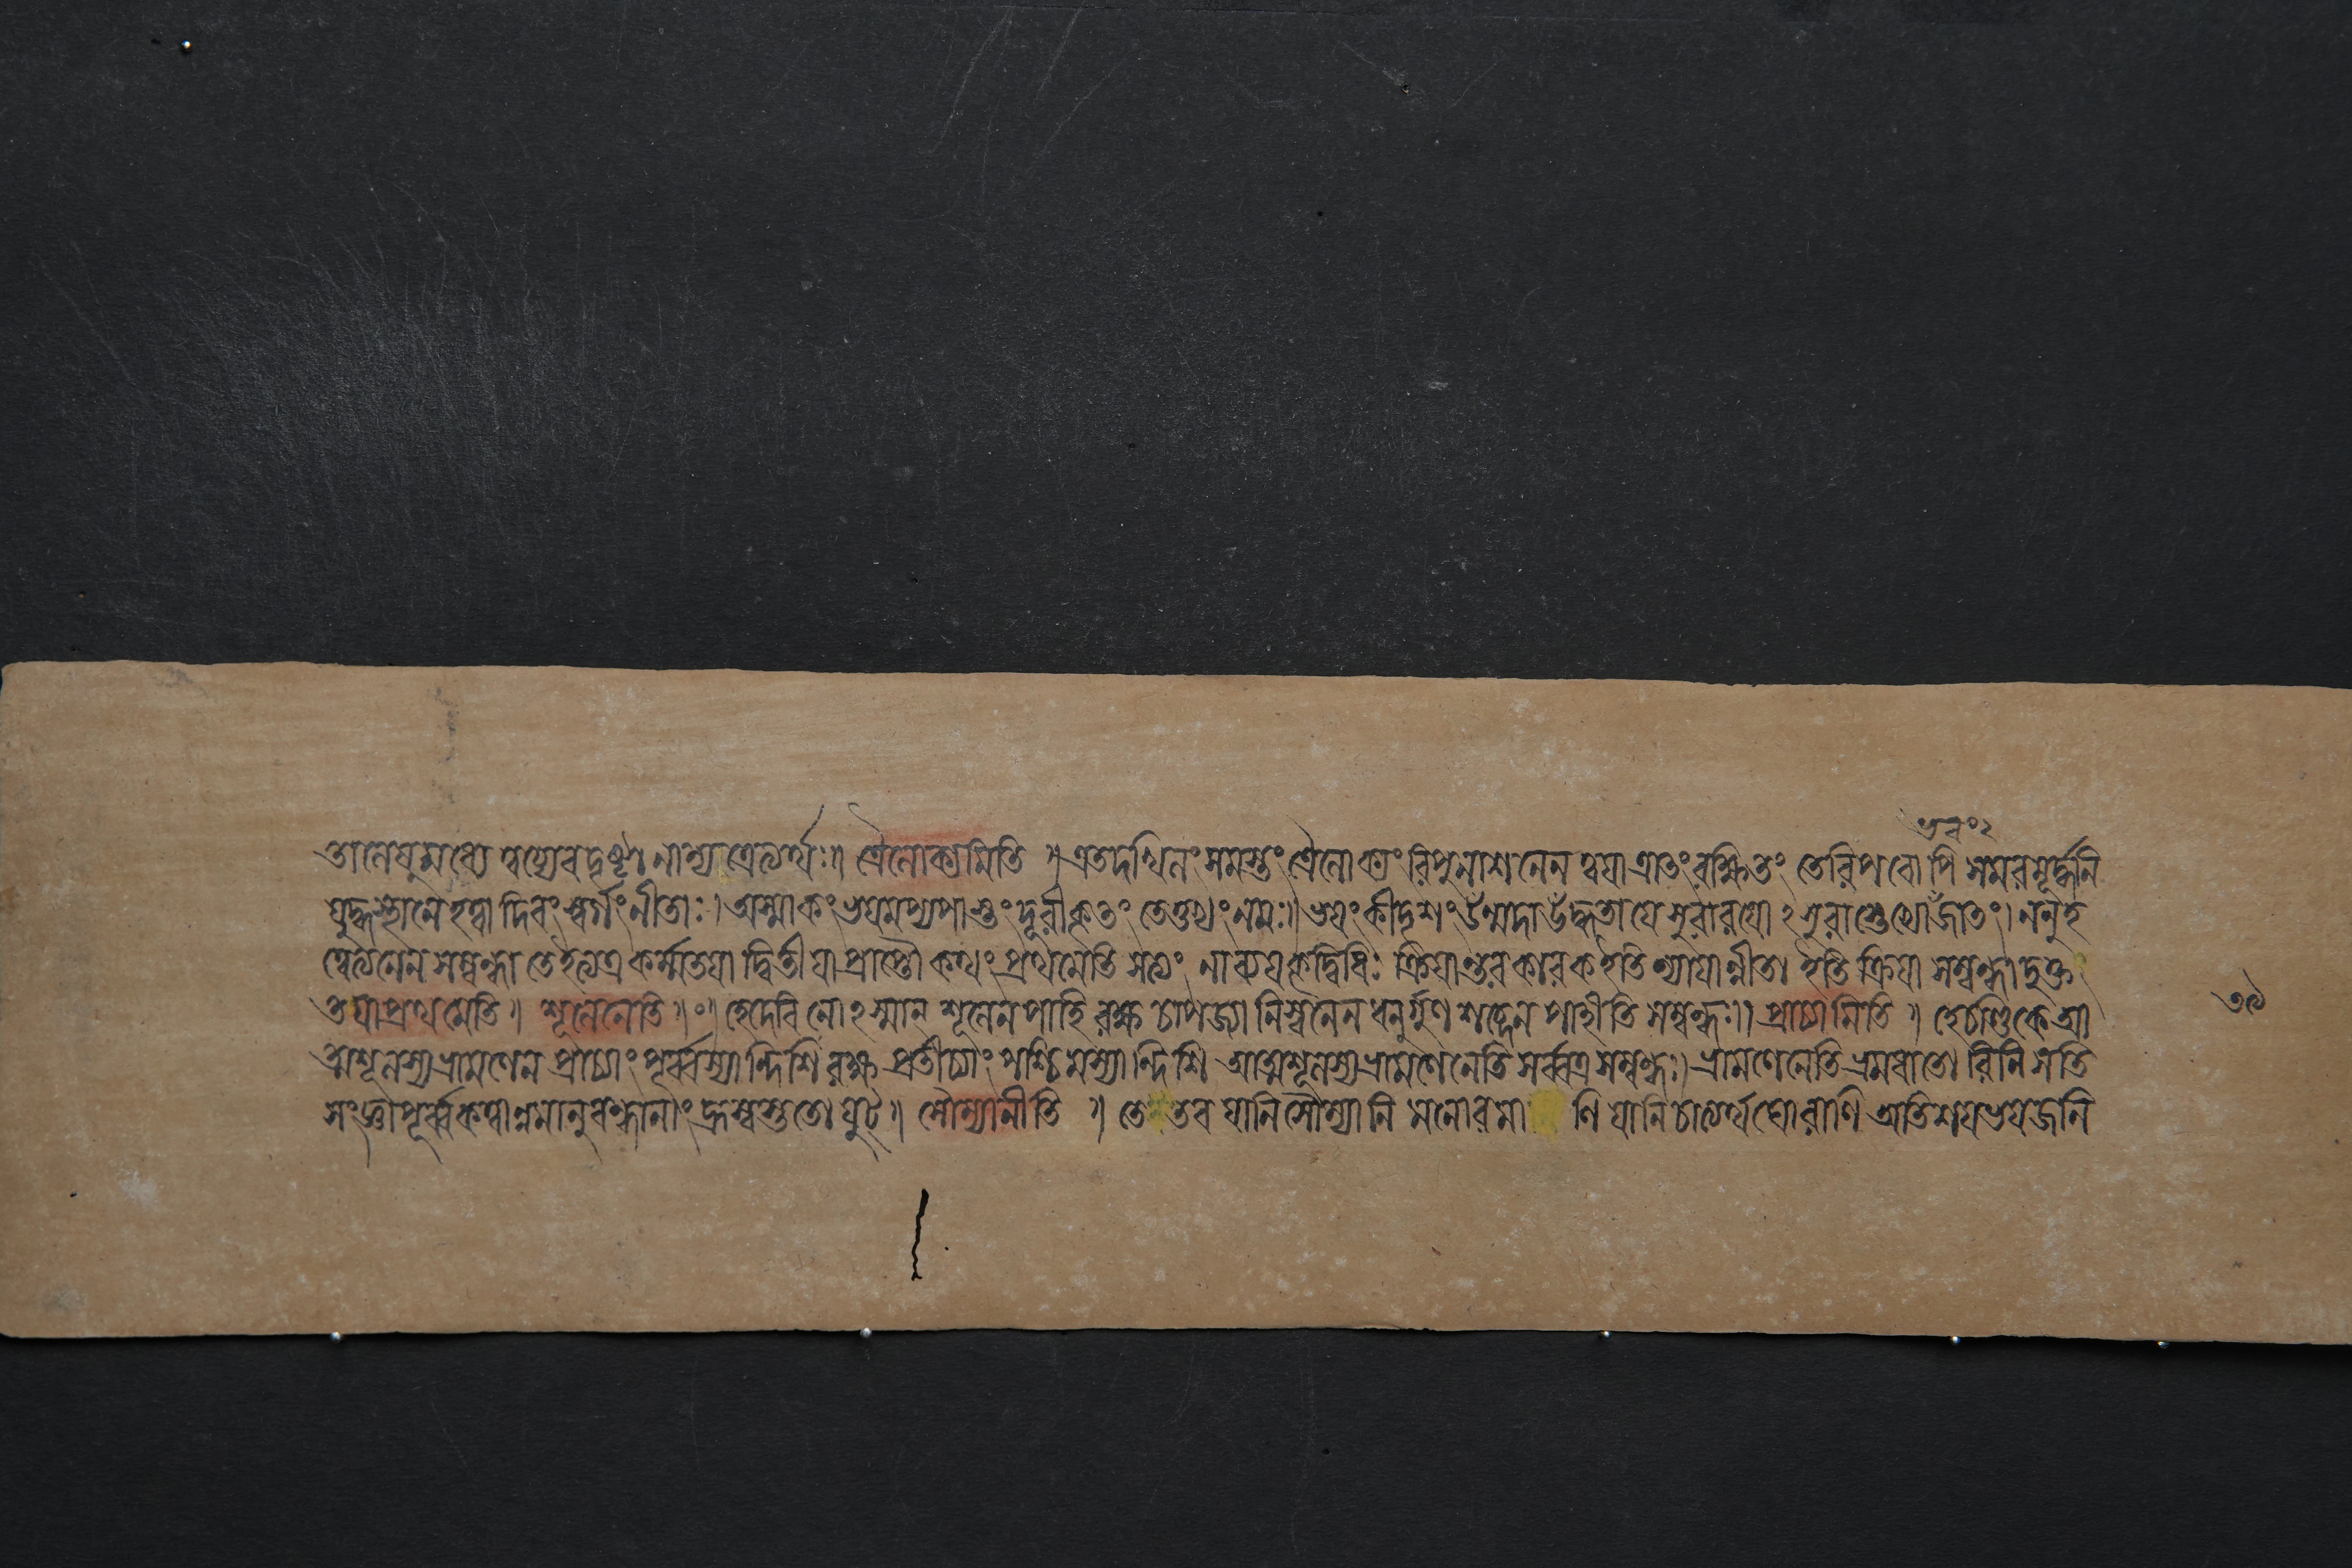 ভবং২
মধ্যে ত্বয্যেব দৃষ্টা নান্যত্রেত্যর্থঃ॥ ত্রৈলোক্যমিতি ॥ এতদখিলং সমস্তং ত্রৈলোক্যং রিপুনাশনেন ত্বয়া ত্রাতং রক্ষিতং তেরিপবোপি সমরমূর্দ্ধনি
যুদ্ধস্থানে হত্বা দিবং স্বর্গং নীতাঃ। অস্মাকং ভয়মপ্যপাস্তং দূরীকৃতং তেতুভ্যং নমঃ॥ ভয়ং কীদৃশং উন্মদা উদ্ধতা যে সুরারয়োঽসুরাস্তেভ্যোজাতং। ননু হ
ত্বেত্যনেন সম্বন্ধা তেইত্যত্র কর্ম্মতয়া দ্বিতীয়া প্রাপ্তৌ কথং প্রথমেতি সত্যং নাব্যয়কৃদ্বিধিঃ ক্রিয়ান্তরকারক ইতি ন্যায়ান্নীতা ইতি ক্রিয়া সম্বন্ধাদুক্ত
তয়া প্রথমেতি॥ শূলেনেতি॥ঃ॥ হেদেবি নোঽস্মান্ শূলেন পাহি রক্ষ চাপজ্যানিস্বনেন ধনুর্গুণশব্দেন পাহীতি সম্বন্ধঃ॥ প্রাচ্যামিতি॥ হেচণ্ডিকে আ
ত্মশূলস্য ভ্রামণেন প্রাচ্যাং পূর্ব্বস্যান্দিশি রক্ষ প্রতীচ্যাং পশ্চিমস্যান্দিশি আত্মশূলস্য ভ্রামণেনেতি সর্ব্বত্র সম্বন্ধঃ। ভ্রামণেনেতি ভ্রমধাতোরিনি সতি
সংজ্ঞাপূর্ব্বকত্বান্নমানুবন্ধানাং হ্রস্বস্ততো যুট্॥ সৌম্যানীতি ॥ তে তব যানি সৌম্যানি মনোরমাণি যানি চাত্যর্থঘোরাণি অতিশয়ভয়জনি
৩৯